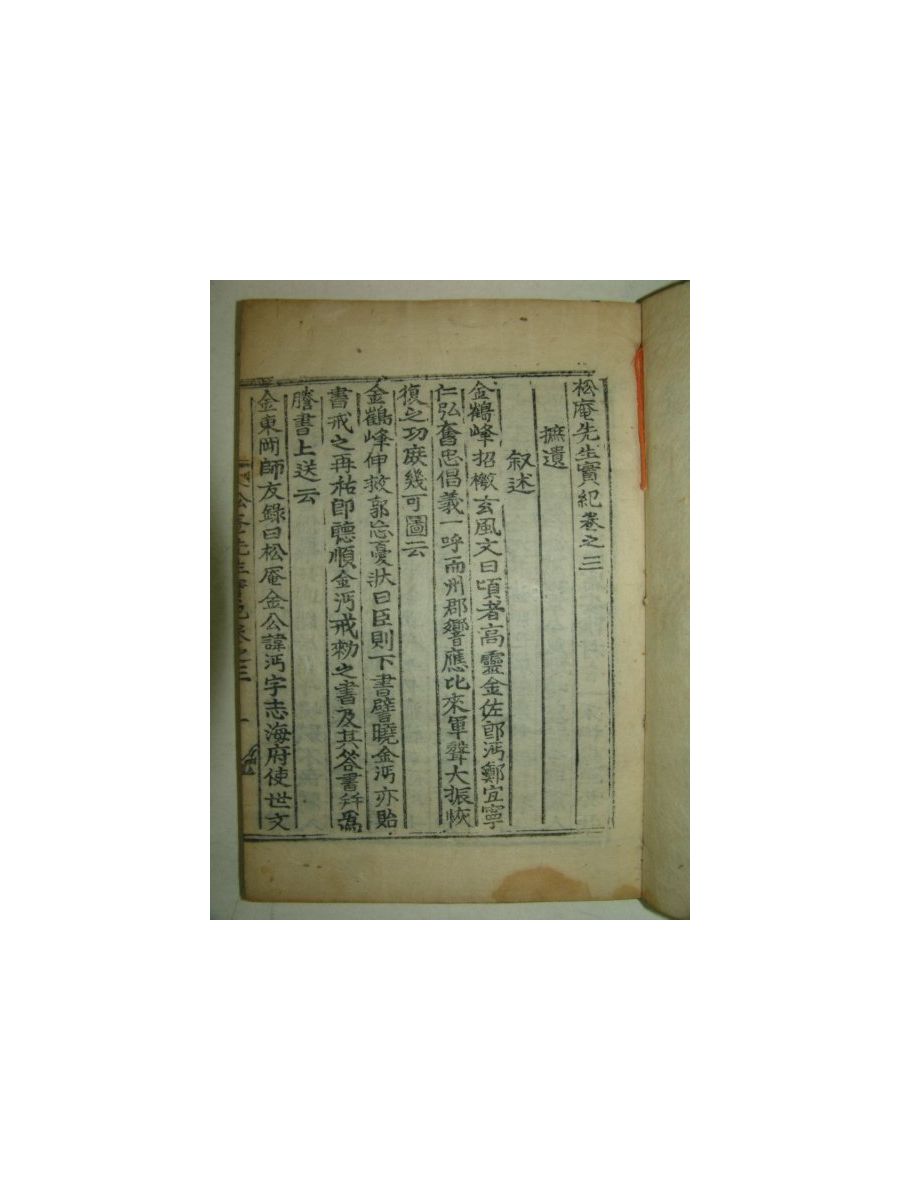 松庵先生實紀卷之三
摭遺
叙述
金鶴峰招檄玄風文曰頃者高靈金佐郎沔鄭宜寧
仁弘奮忠倡義一呼而州郡響應比來軍聲大振恢
復之功庻幾可圖云
金鶴峰伸救郭忘憂狀曰臣則下書譬曉金沔亦貽
書戒之再祐卽聽順金沔戒勑之書及其答書幷爲
謄書上送云
金東岡師友錄曰松庵金公諱沔字志海府使世文